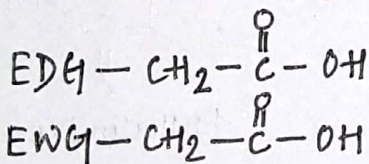 O
EDG — CH₂ — C — OH
O
EWG — CH₂ — C — OH